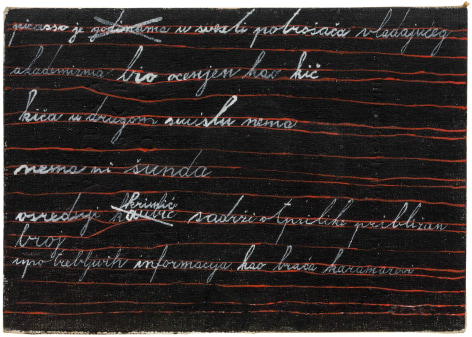 picasso je godinama u svesti potrošača vladajućeg
akademizma bio ocenjen kao kič
kiča u drugom smislu nema
nema ni šunda
osrednji krimić sadrži otprilike približan
broj
upotrebljivih informacija kao braća karamazov